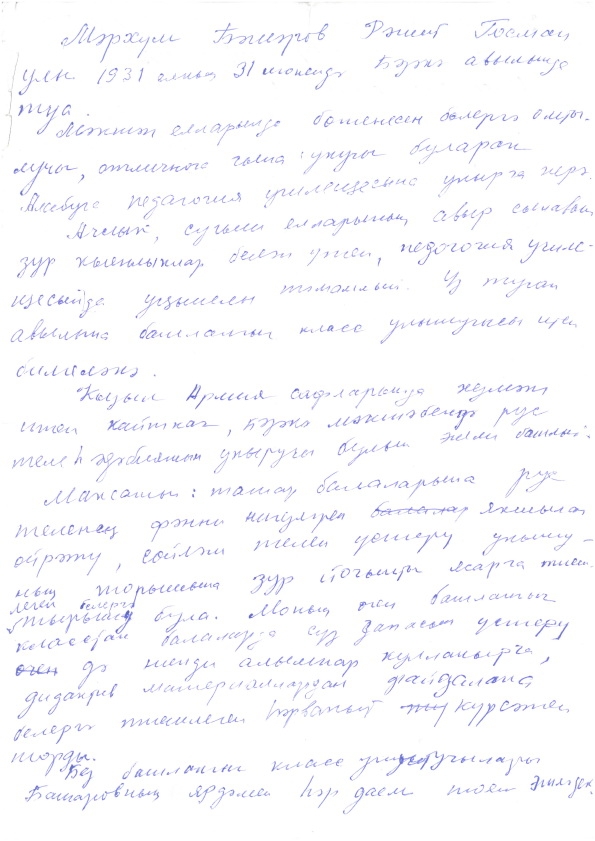 Мәрхүм Бәширов Рәшит Госман
улы 1931 елның 31 июнендә Бәркә авылында
туа.
Мәктәп елларында бөтенесен белергә омты-
лучы, отличнога гына укучы буларак
Алабуга педагогия училищесына укырга керә.
Ачлык, сугыш елларының авыр сынавын
зур кыенлыклар белән үтеп, педагогия учили-
щесында уңышлы тәмамлый. Үз туган
авылына башлангыч класс укытучысы итеп
билгеләнә.
Кызыл Армия сафларында хезмәт
итеп кайткач, Бәркә мәктәбендә рус
теле һәм әдәбиятын укытучы булып эшли башлый.
Максатым: татар балаларына рус
теленең фәнни нигезләрен яхшылап
өйрәтү, сөйләм телен үстерү укыту-
ның торышына зур игътибар ясарга тиеш-
леген белергә
тырышу була. Моның өчен башлангыч
класстан балаларда сүз запасын үстерү
өчен дә нинди алымнар кулланырга,
дидактив материаллардан файдалана
белергә тиешлеген һәрвакыт күрсәтеп
торды.
Без башлангыч класс укытучылары
Башировның ярдәмен һәр даем тоеп эшләдек.